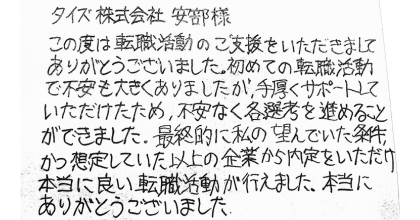 タイズ株式会社 安部様
この度は転職活動のご支援をいただきまして
ありがとうございました。初めての転職活動
で不安も大きくありましたが、手厚くサポートして
いただけたため、不安なく各選考を進めること
ができました。最終的に私の望んでいた条件、
かつ想定していた以上の企業から内定をいただけ
本当に良い転職活動が行えました。本当に
ありがとうございました。